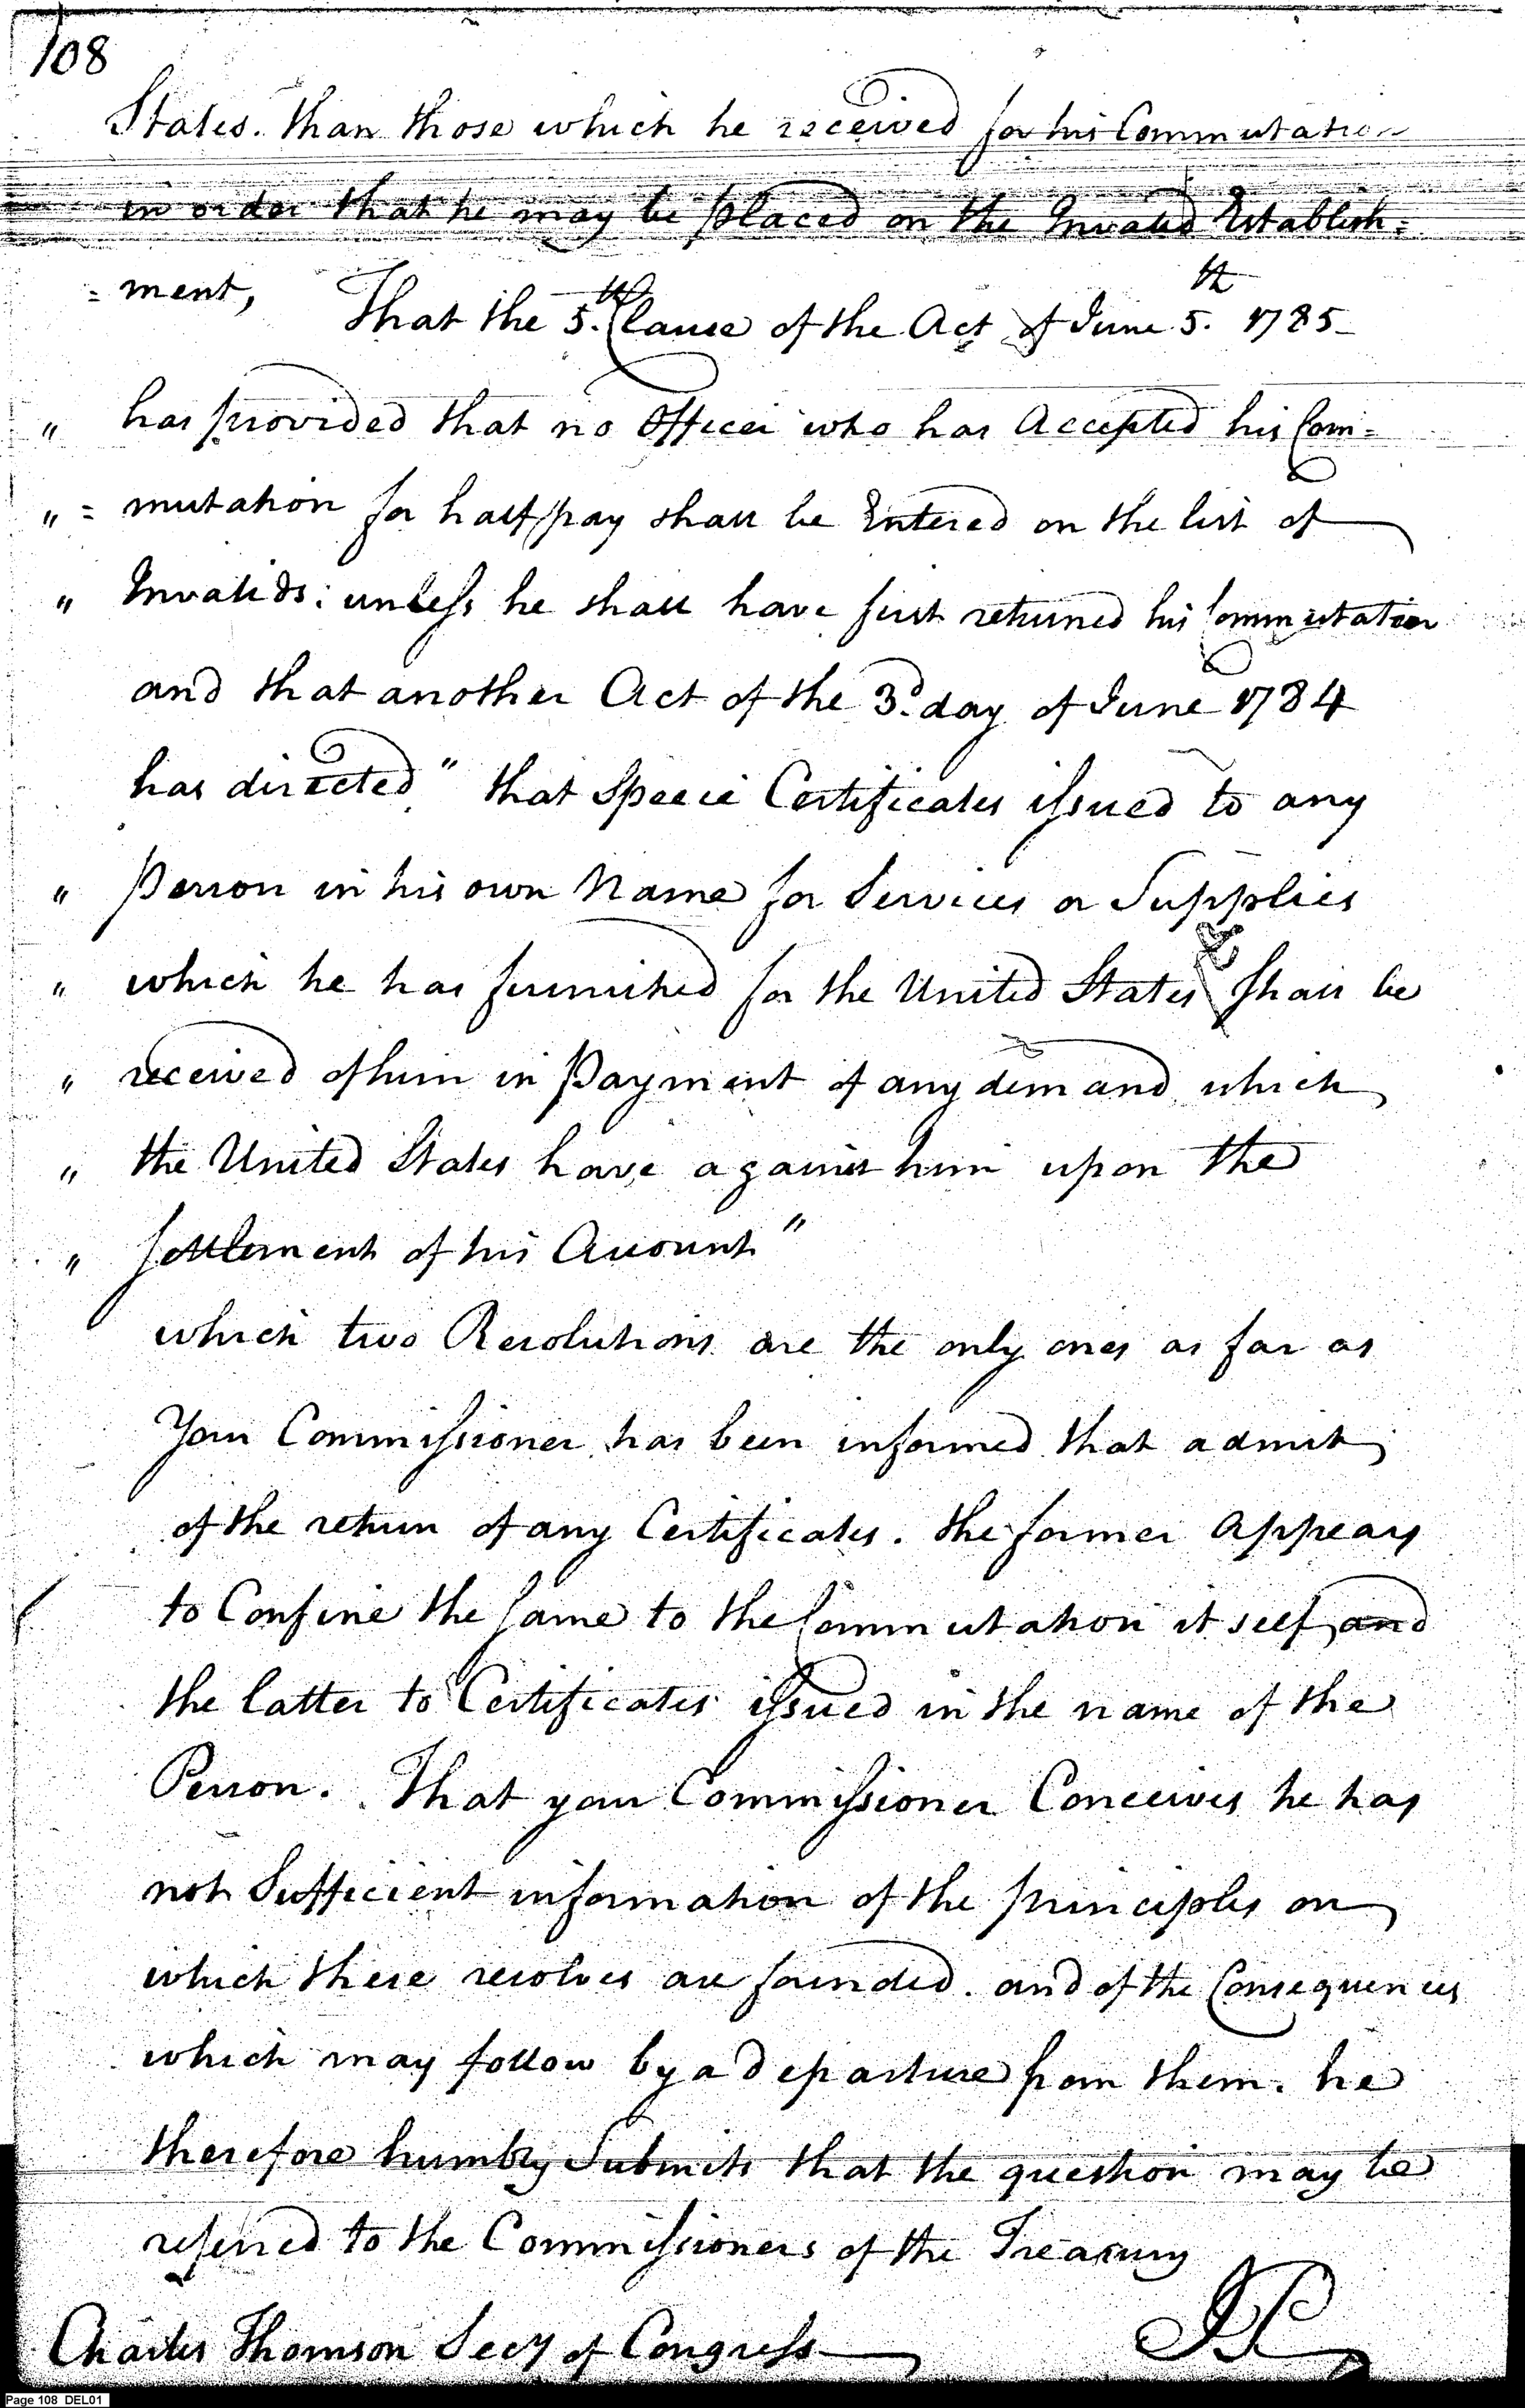 108
States. than those which he received for his Commutation
in order that he may be placed on the Invalid Establish=
=ment, That the 5.th Clause of the Act of June 5.th 1785
" has provided that no Officer who has Accepted his Com=
" =mutation for half pay shall be Entered on the list of
" Invalids: unless he shall have first returned his Commutation
and that another Act of the 3.d day of June 1784
has directed, " that Specie Certificates issued to any
" Person in his own Name for Services or Supplies
" which he has furnished for the United States shall be
" received of him in Payment of any demand which
" the United States have against him upon the
" Settlement of his Account "
which two Resolutions are the only ones as far as
Your Commissioner has been informed that admit
of the return of any Certificates. the former Appears
to Confine the Same to the Commutation it self and
the latter to Certificates issued in the name of the
Person. That your Commissioner Conceives he has
not Sufficient information of the principles on
which these resolves are founded. and of the Consequences
which may follow by a departure from them. he
therefore humbly Submits that the question may be
referred to the Commissioners of the Treasury
Charles Thomson Secy of Congress JP
Page 108 DEL01